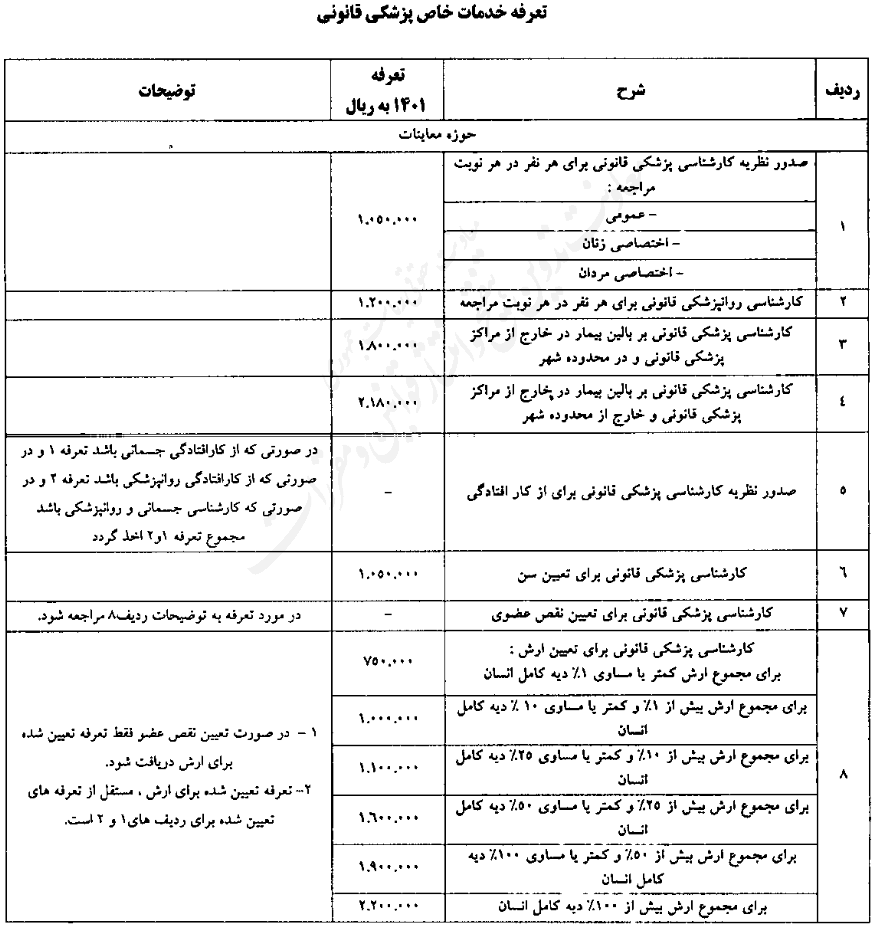 تعرفه خدمات خاص پزشکی قانونی
ردیف
شرح
تعرفه
۱۴۰۱ به ریال
توضیحات
حوزه معاینات
۱
صدور نظریه کارشناسی پزشکی قانونی برای هر نفر در هر نوبت
مراجعه :
- عمومی
- اختصاصی زنان
- اختصاصی مردان
۱.۰۵۰.۰۰۰
۲
کارشناسی روانپزشکی قانونی برای هر نفر در هر نوبت مراجعه
۱.۲۰۰.۰۰۰
۳
کارشناسی پزشکی قانونی بر بالین بیمار در خارج از مراکز
پزشکی قانونی و در محدوده شهر
۱.۸۰۰.۰۰۰
۴
کارشناسی پزشکی قانونی بر بالین بیمار در خارج از مراکز
پزشکی قانونی و خارج از محدوده شهر
۲.۱۸۰.۰۰۰
۵
صدور نظریه کارشناسی پزشکی قانونی برای از کار افتادگی
-
در صورتی که از کارافتادگی جسمانی باشد تعرفه ۱ و در
صورتی که از کارافتادگی روانپزشکی باشد تعرفه ۲ و در
صورتی که کارشناسی جسمانی و روانپزشکی باشد
مجموع تعرفه ۱و۲ اخذ گردد
۶
کارشناسی پزشکی قانونی برای تعیین سن
۱.۰۵۰.۰۰۰
۷
کارشناسی پزشکی قانونی برای تعیین نقص عضوی
-
در مورد تعرفه به توضیحات ردیف۸ مراجعه شود.
۸
کارشناسی پزشکی قانونی برای تعیین ارش :
برای مجموع ارش کمتر یا مساوی ۱٪ دیه کامل انسان
۷۵۰.۰۰۰
برای مجموع ارش بیش از ۱٪ و کمتر یا مساوی ۱۰ ٪ دیه کامل
انسان
۱.۰۰۰.۰۰۰
برای مجموع ارش بیش از ۱۰٪ و کمتر یا مساوی ۲۵٪ دیه کامل
انسان
۱.۱۰۰.۰۰۰
برای مجموع ارش بیش از ۲۵٪ و کمتر یا مساوی ۵۰٪ دیه کامل
انسان
۱.۶۰۰.۰۰۰
برای مجموع ارش بیش از ۵۰٪ و کمتر یا مساوی ۱۰۰٪ دیه
کامل انسان
۱.۹۰۰.۰۰۰
برای مجموع ارش بیش از ۱۰۰٪ دیه کامل انسان
۲.۲۰۰.۰۰۰
۱ - در صورت تعیین نقص عضو فقط تعرفه تعیین شده
برای ارش دریافت شود.
۲- تعرفه تعیین شده برای ارش ، مستقل از تعرفه های
تعیین شده برای ردیف های۱ و ۲ است.